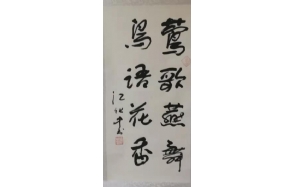 莺歌燕舞
鸟语花香